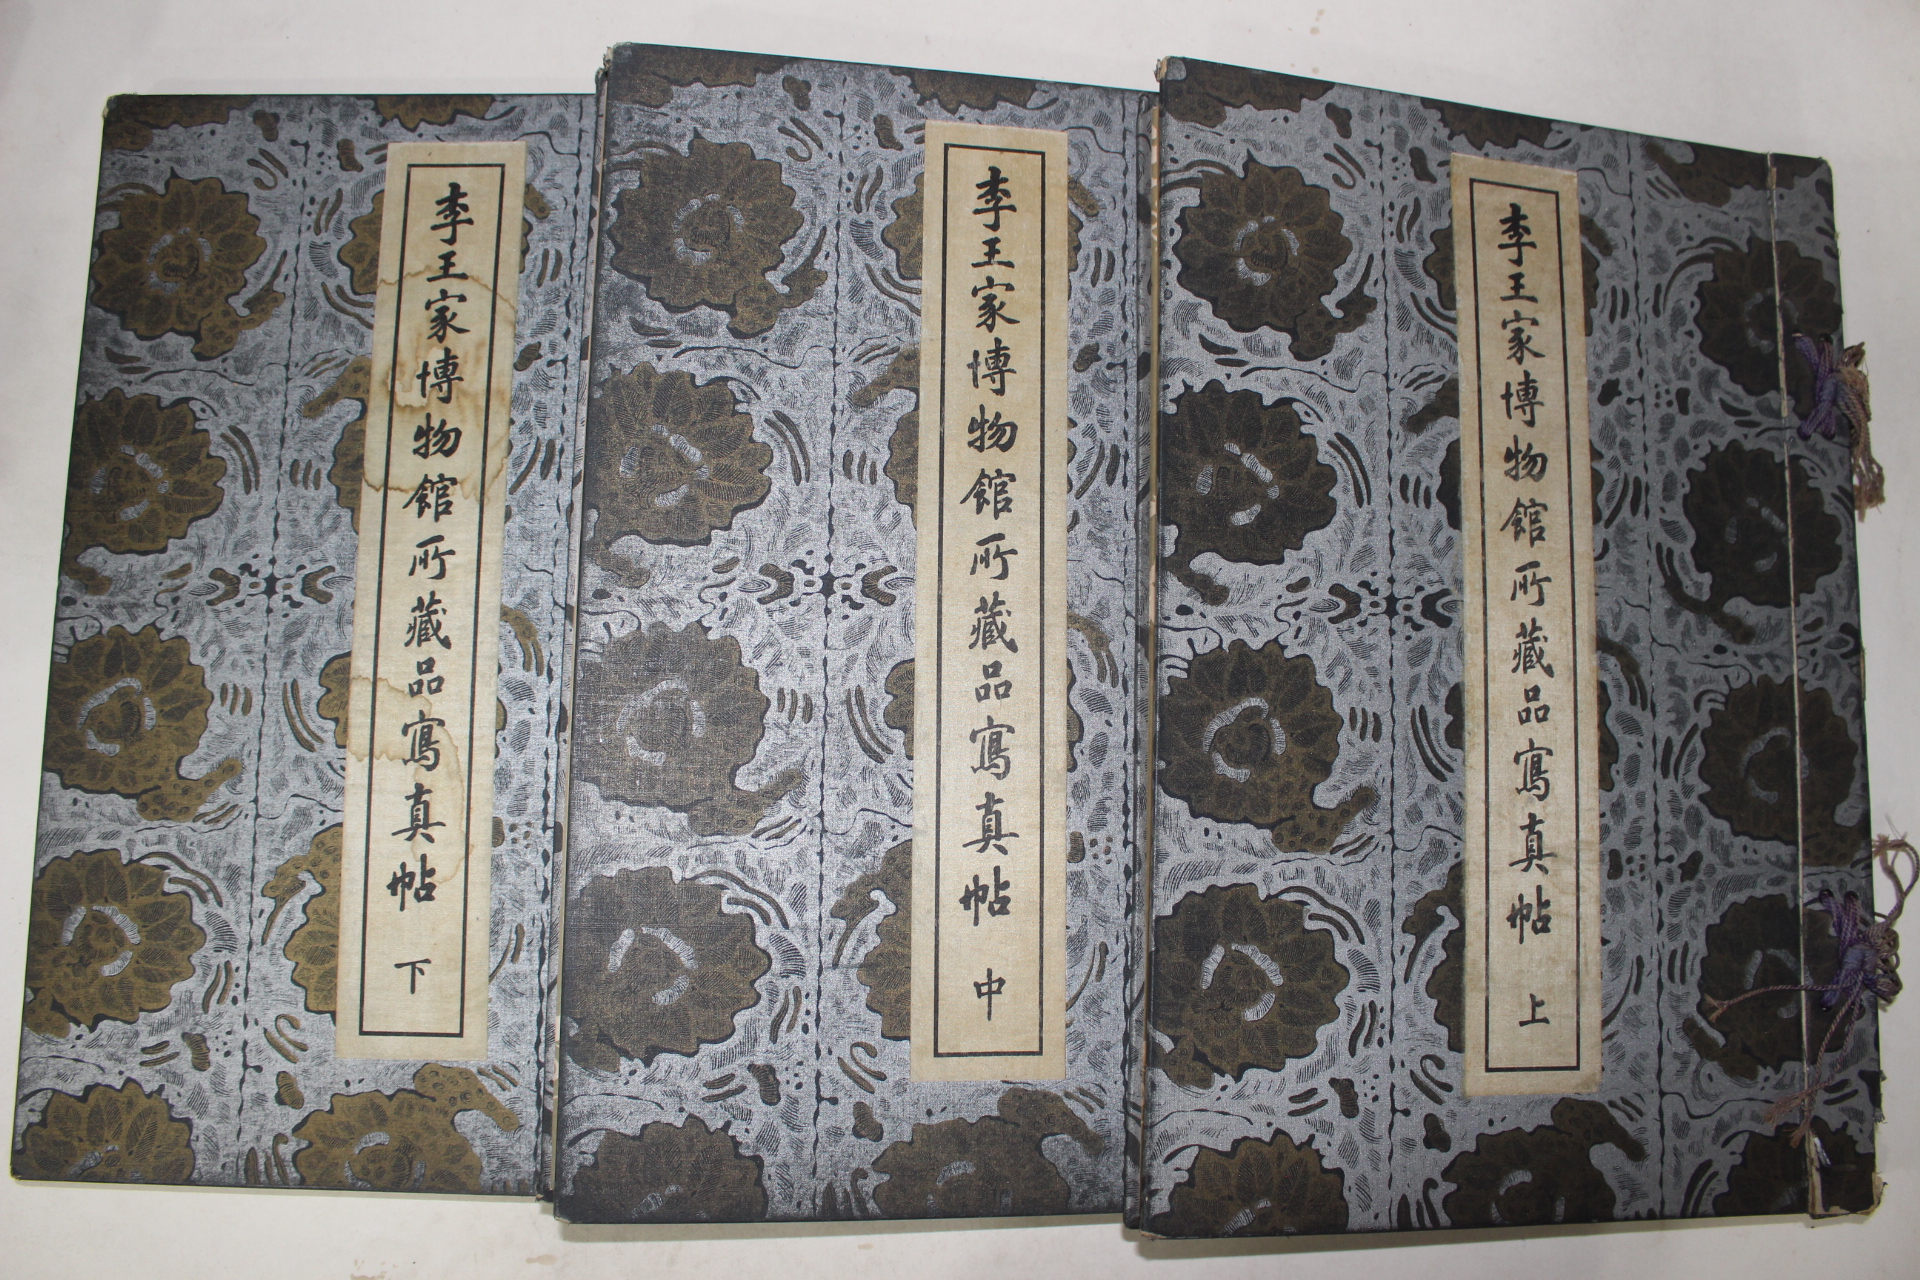 李王家博物館所藏品寫真帖 上
李王家博物館所藏品寫真帖 中
李王家博物館所藏品寫真帖 下